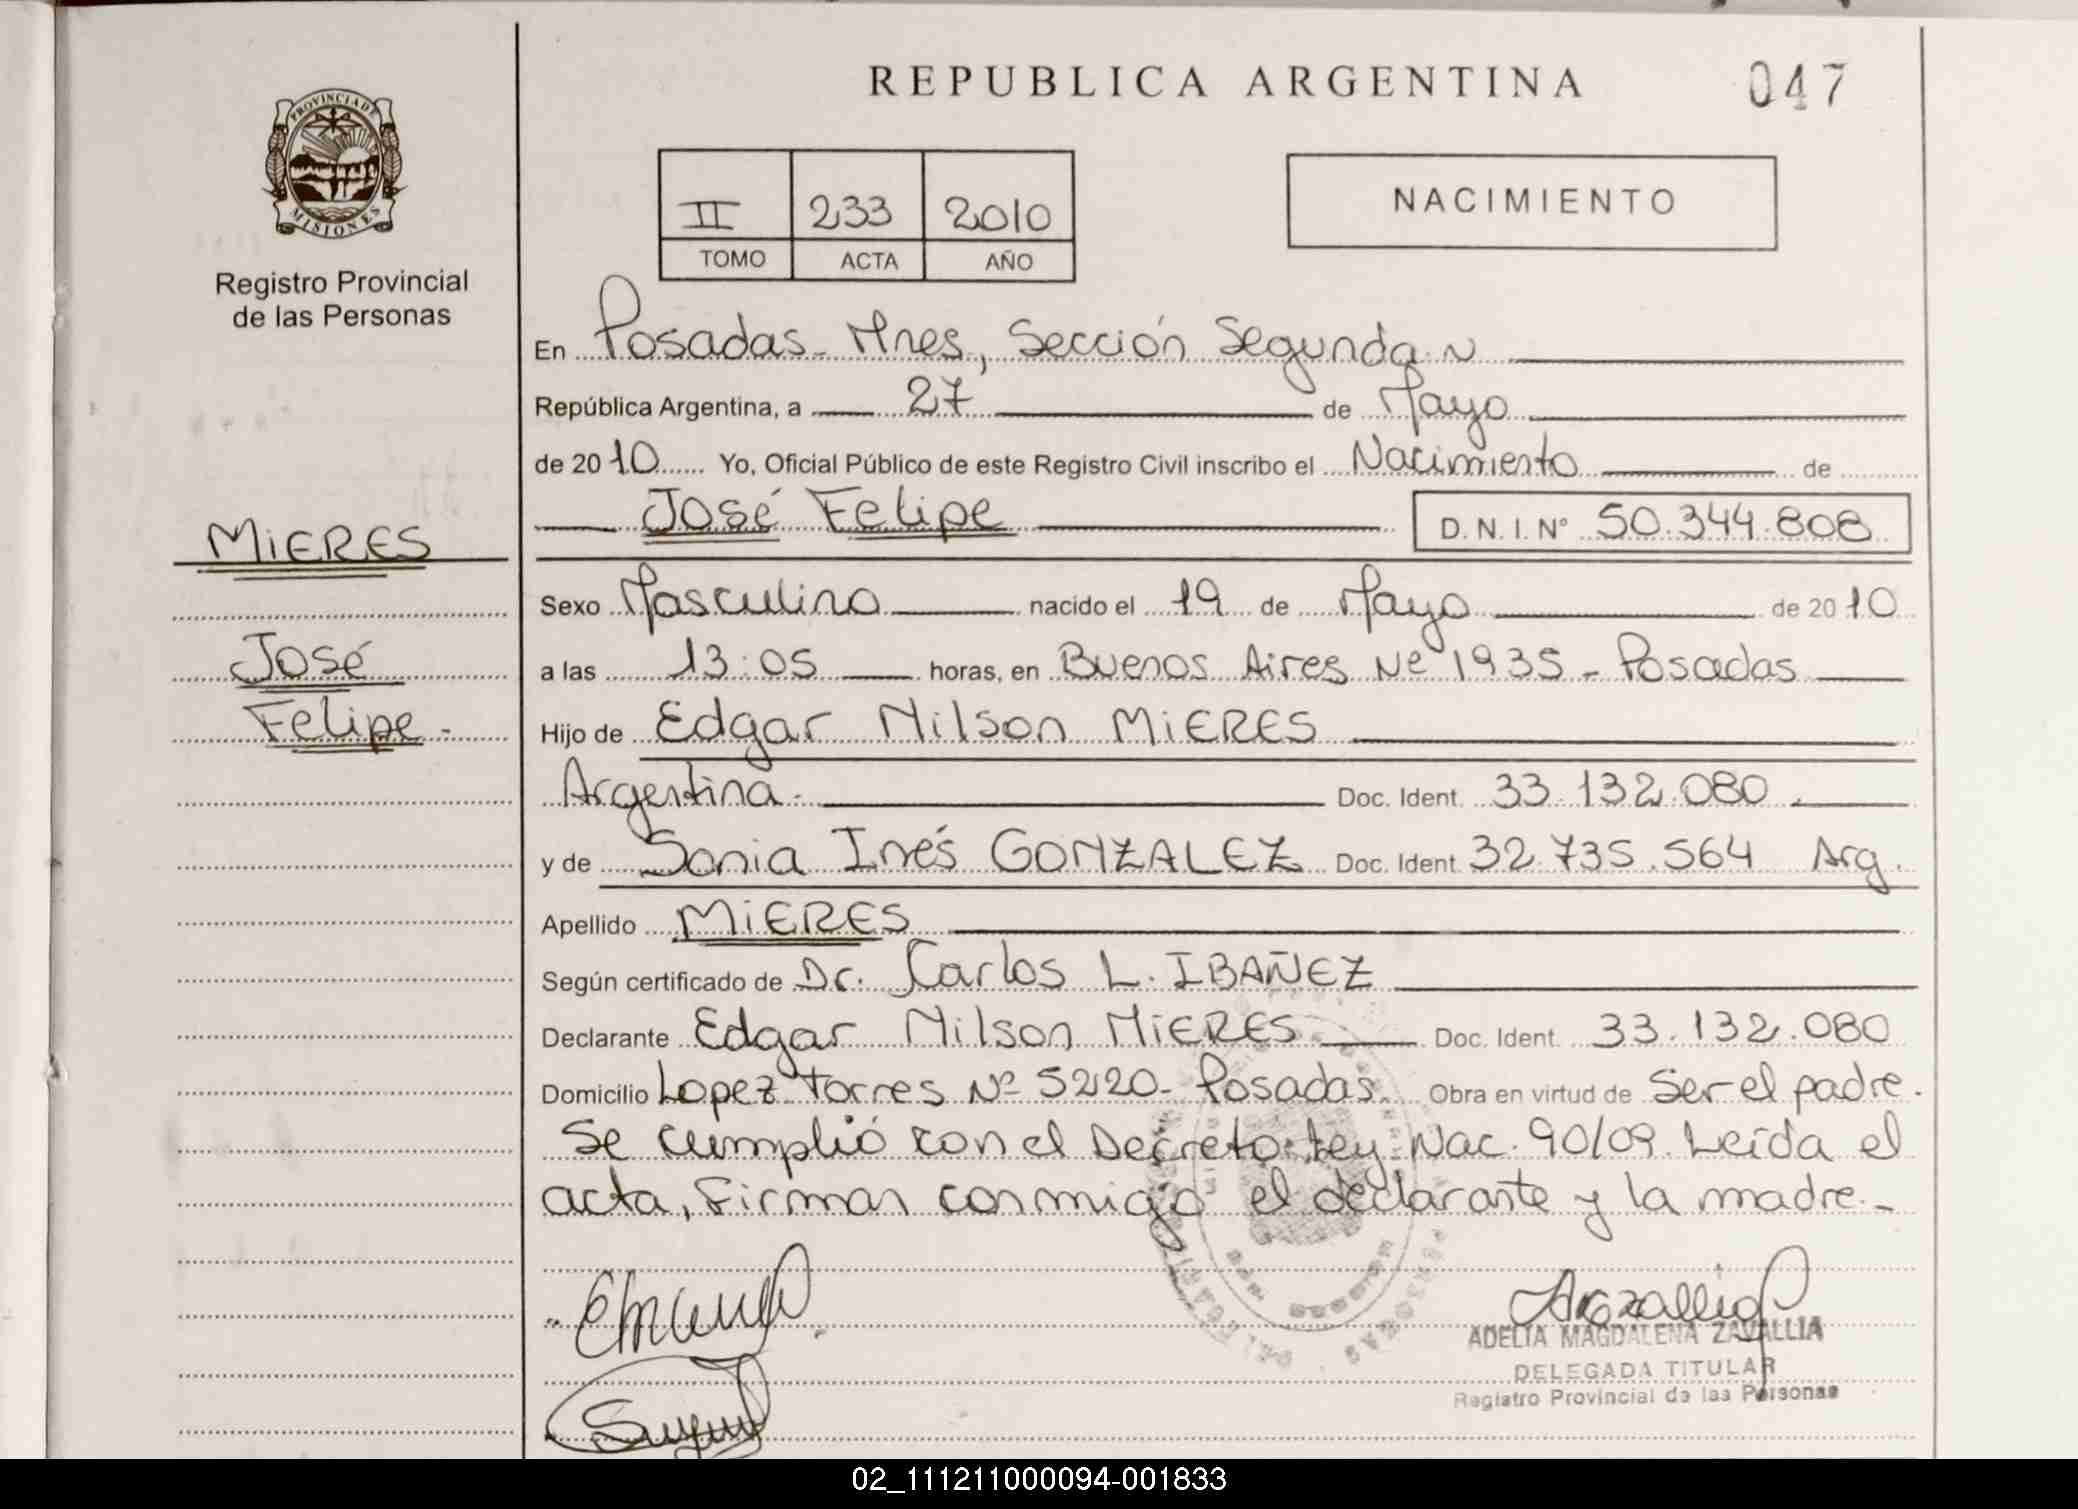 REPUBLICA ARGENTINA
047
PROVINCIA DE
MISIONES
Registro Provincial
de las Personas
II 233 2010
TOMO ACTA AÑO
NACIMIENTO
En Posadas - Mnes, Sección Segunda
República Argentina, a 27 de Mayo
de 2010 Yo, Oficial Público de este Registro Civil inscribo el Nacimiento de
José Felipe D.N.I. Nº 50.344.808
MIERES
José
Felipe.-
Sexo Masculino nacido el 19 de Mayo de 2010
a las 13:05 horas, en Buenos Aires Nº 1935 - Posadas
Hijo de Edgar Milson MIERES
Argentina.- Doc. Ident. 33.132.080.
y de Sonia Inés GONZALEZ Doc. Ident. 32.735.564 Arg.
Apellido MIERES
Según certificado de Dr. Carlos L. IBAÑEZ
Declarante Edgar Milson MIERES Doc. Ident. 33.132.080
Domicilio Lopez Torres Nº 5220- Posadas. Obra en virtud de Ser el padre.
Se cumplió con el Decreto-Ley Nac. 90/09. Leída el
acta, Firman conmigo el declarante y la madre.-
ADELIA MAGDALENA ZAVALLIA
DELEGADA TITULAR
Registro Provincial de las Personas
02_111211000094-001833